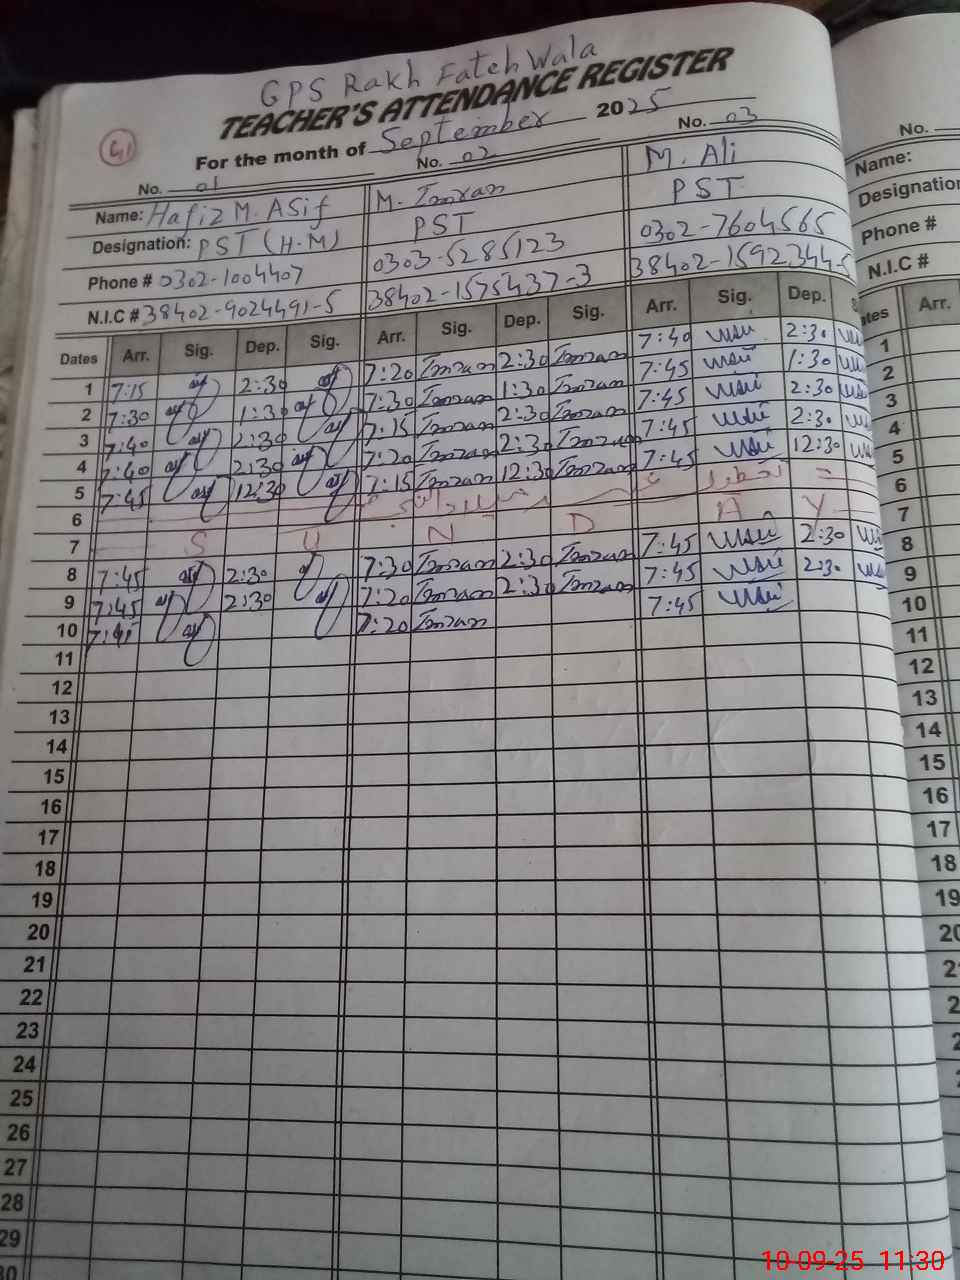 GPS Rakh Fateh Wala
TEACHER'S ATTENDANCE REGISTER
41
For the month of September 2025
No. 01 No. 02 No. 03 No.
Name: Hafiz M. Asif M. Imran M. Ali Name:
Designation: PST (H.M) PST PST Designation
Phone # 0302-1004407 0303-5285123 0302-7604565 Phone #
N.I.C # 38402-9024491-5 38402-1575437-3 38402-1592344-5 N.I.C #
Dates Arr. Sig. Dep. Sig. Arr. Sig. Dep. Sig. Arr. Sig. Dep. S ates Arr.
1 7:15 2:30 7:20 Imran 2:30 Imran 7:40 2:30 1
2 7:30 1:30 7:30 Imran 1:30 Imran 7:45 1:30 2
3 7:40 2:30 7:15 Imran 2:30 Imran 7:45 2:30 3
4 7:40 2:30 7:20 Imran 2:30 Imran 7:45 2:30 4
5 7:45 12:30 7:15 Imran 12:30 Imran 7:45 12:30 5
6 6
7 S U N D A Y 7
8 7:45 2:30 7:30 Imran 2:30 Imran 7:45 2:30 8
9 7:45 2:30 7:20 Imran 2:30 Imran 7:45 2:30 9
10 7:20 Imran 7:45 10
11 11
12 12
13 13
14 14
15 15
16 16
17 17
18 18
19 19
20 20
21 2
22 2
23 2
24
25
26
27
28
29
30
10-09-25 11:30